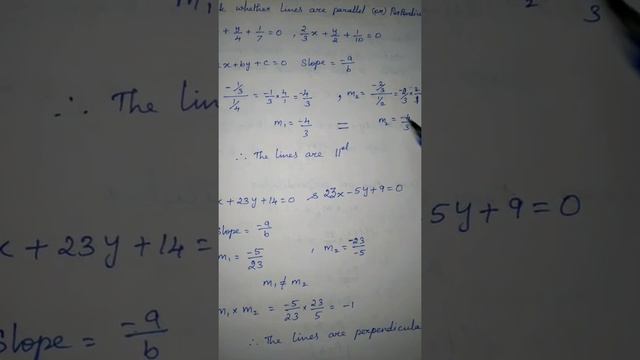 k whether lines are parallel (or) Perpendicu
+ y/4 + 1/7 = 0 , 2/3 x + y/2 + 1/10 = 0
x + by + c = 0 Slope = -a/b
-1/3 / 1/4 = -1/3 × 4/1 = -4/3 , m₂ = -2/3 / 1/2 = -2/3 × 2/1
m₁ = -4/3 = m₂ = -4/3
∴ The lines are 11el
x + 23y + 14 = 0 23x - 5y + 9 = 0
Slope = -a/b
m₁ = -5/23 , m₂ = -23/-5
m₁ ≠ m₂
m₁ × m₂ = -5/23 × 23/5 = -1
∴ The lines are perpendicula
∴ The lin
x + 23y + 14 =
5y + 9 = 0
Slope = -a/b